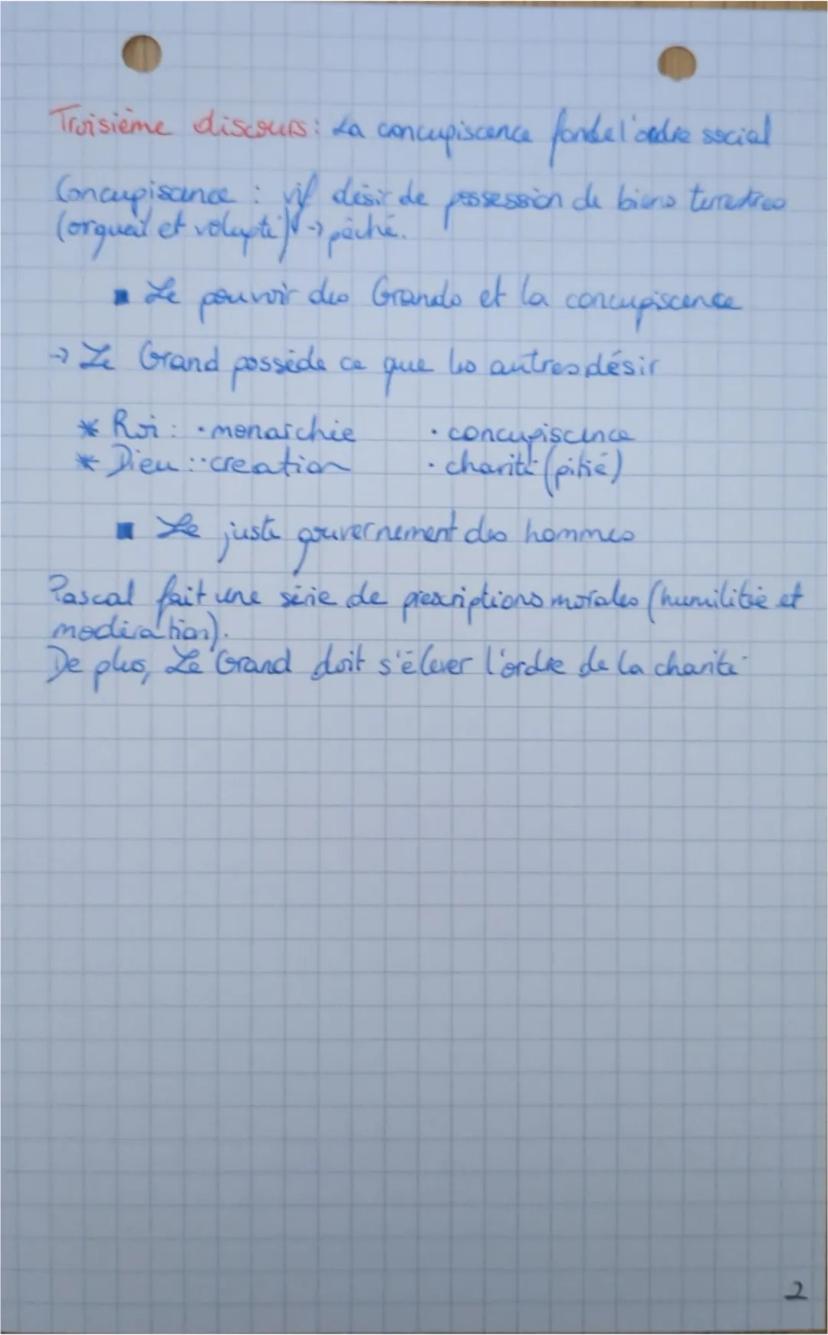 Troisième discours : La concupiscence fonde l'ordre social
Concupiscence : vif désir de possession de biens terrestres
(orgueil et volupté) → péché.
▪ Le pouvoir des Grands et la concupiscence
→ Le Grand possède ce que les autres désir
* Roi : · monarchie · concupiscence
* Dieu : · creation · charité (pitié)
▪ Le juste gouvernement des hommes
Pascal fait une série de prescriptions morales (humilitié et
modération).
De plus, Le Grand doit s'élever l'ordre de la charité
2